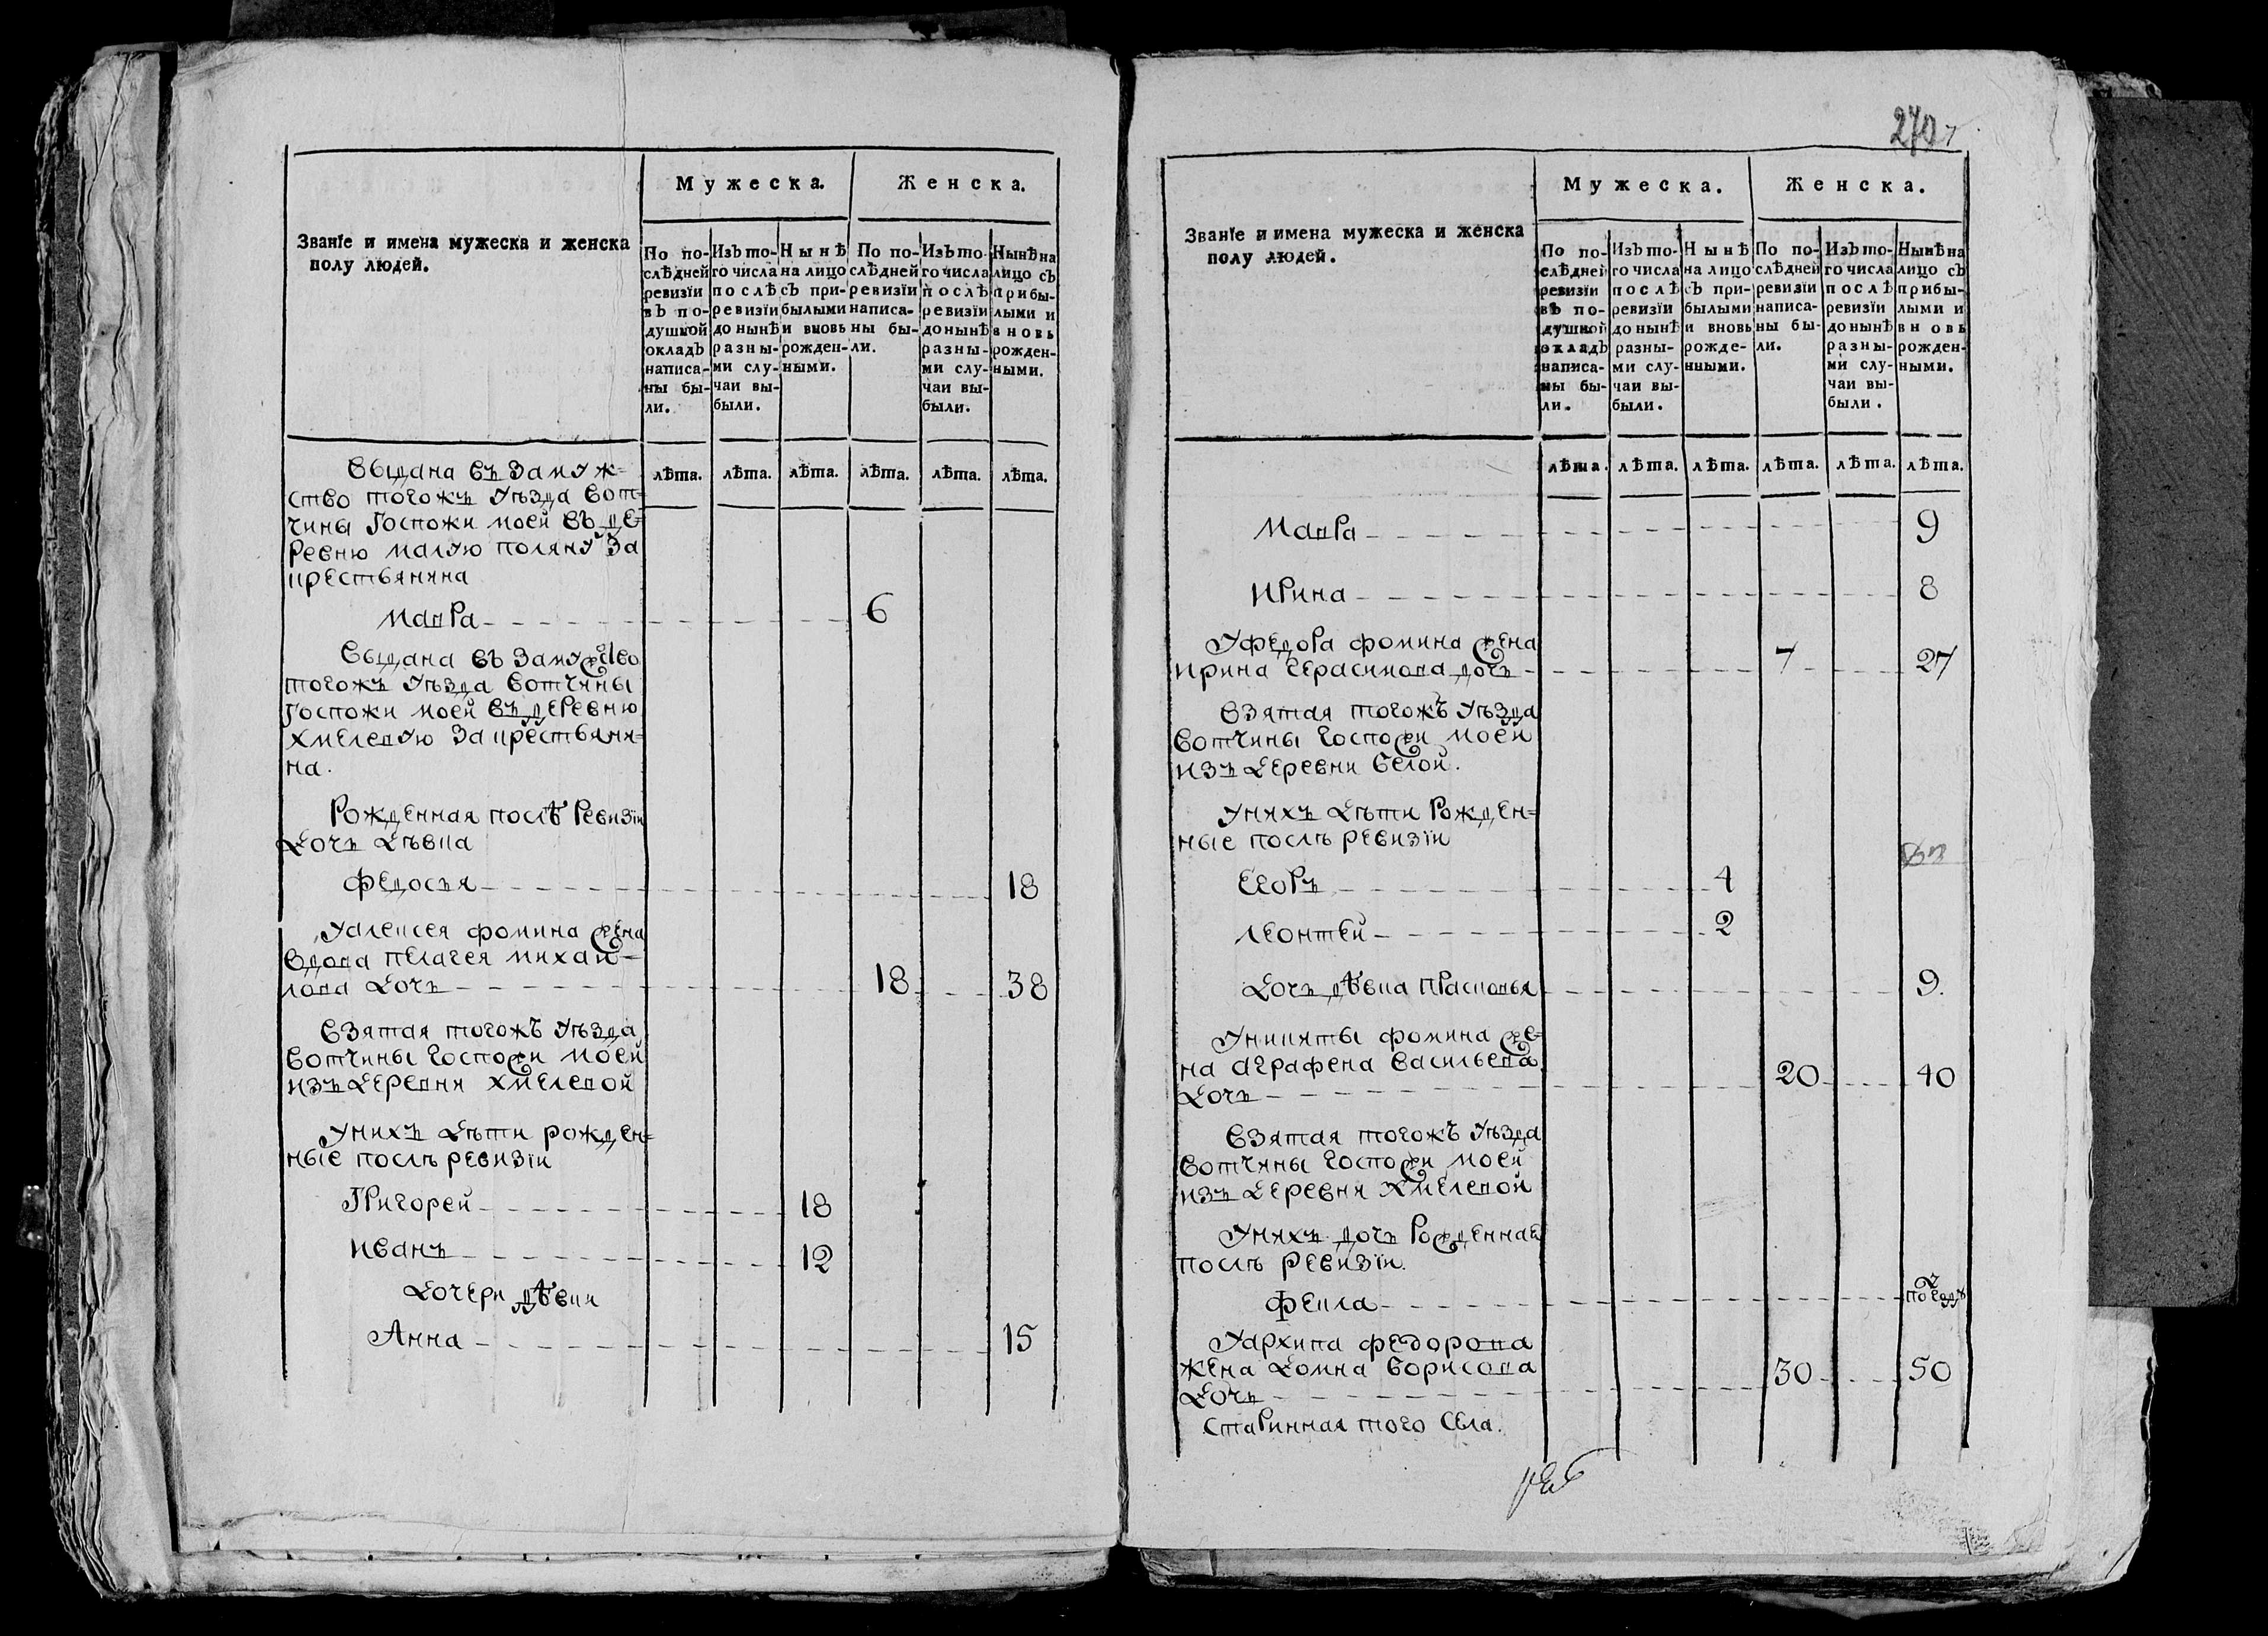 Званїе и имена мужеска и женска
полу людей.
Мужеска.
Женска.
По по-
слѣдней
ревизїи
въ по-
душной
окладъ
написа-
ны бы-
ли.
Изъ то-
го числа
послѣ
ревизїи
до нынѣ
разны-
ми слу-
чаи вы-
были.
Нынѣ
на лицо
съ при-
былыми
и вновь
рожден-
ными.
По по-
слѣдней
ревизїи
написа-
ны бы-
ли.
Изъ то-
го числа
послѣ
ревизїи
до нынѣ
разны-
ми слу-
чаи вы-
были.
Нынѣ на
лицо съ
прибы-
лыми и
вновь
рожден-
ными.
лѣта. лѣта. лѣта. лѣта. лѣта. лѣта.
выдана въ замуж=
ство тогожъ уѣзда вот=
чины Госпожи моей въ де=
ревню малую поляну за
крестьянина
мавра 6
выдана въ замужство
тогожъ уѣзда вотчины
Госпожи моей въ деревню
хмелевую за крестьяни=
на.
Рожденная послѣ ревизїи
дочь дѣвка
федосья 18
Уалексея фомина жена
вдова пелагея михай=
лова дочь 18 38
взятая тогожъ уѣзда
вотчины госпожи моей
изъ деревни хмелевой
унихъ дѣти рожден=
ные послѣ ревизїи
Григорей 18
иванъ 12
дочери дѣвки
Анна 15
270
Званїе и имена мужеска и женска
полу людей.
Мужеска.
Женска.
По по-
слѣдней
ревизїи
въ по-
душной
окладъ
написа-
ны бы-
ли.
Изъ то-
го числа
послѣ
ревизїи
до нынѣ
разны-
ми слу-
чаи вы-
были.
Нынѣ
на лицо
съ при-
былыми
и вновь
рожде-
нными.
По по-
слѣдней
ревизїи
написа-
ны бы-
ли.
Изъ то-
го числа
послѣ
ревизїи
до нынѣ
разны-
ми слу-
чаи вы-
были.
Нынѣ на
лицо съ
прибы-
лыми и
вновь
рожден-
ными.
лѣта. лѣта. лѣта. лѣта. лѣта. лѣта.
мавра 9
ирина 8
Уфедора фомина жена
ирина герасимова дочь 7 27
взятая тогожъ уѣзда
вотчины госпожи моей
изъ деревни белой.
унихъ дѣти рожден=
ные послѣ ревизїи
егоръ 4
леонтей 2
дочь дѣвка прасковья 9.
Уникиты фомина же=
на аграфена васильева
дочь 20 40
взятая тогожъ уѣзда
вотчины госпожи моей
изъ деревни хмелевой
унихъ дочь рожденная
послѣ ревизїи.
фекла 2
по году
Уархипа федорова
жена домна борисова
дочь 30 50
старинная того села.